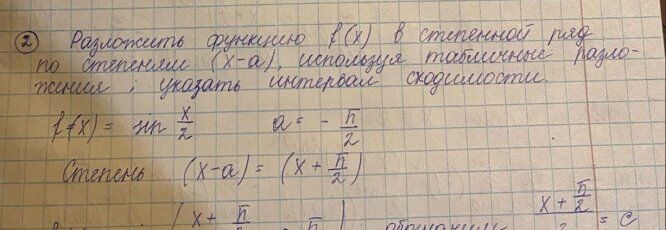 ② Разложить функцию f(x) в степенной ряд
по степеням (x-a), используя табличные разло-
жения; указать интервал сходимости.
f(x) = sin x/2    a = - π/2
Степень (x-a) = (x + π/2)
x + π/2    π    обозначим    x + π/2 / 2 = c